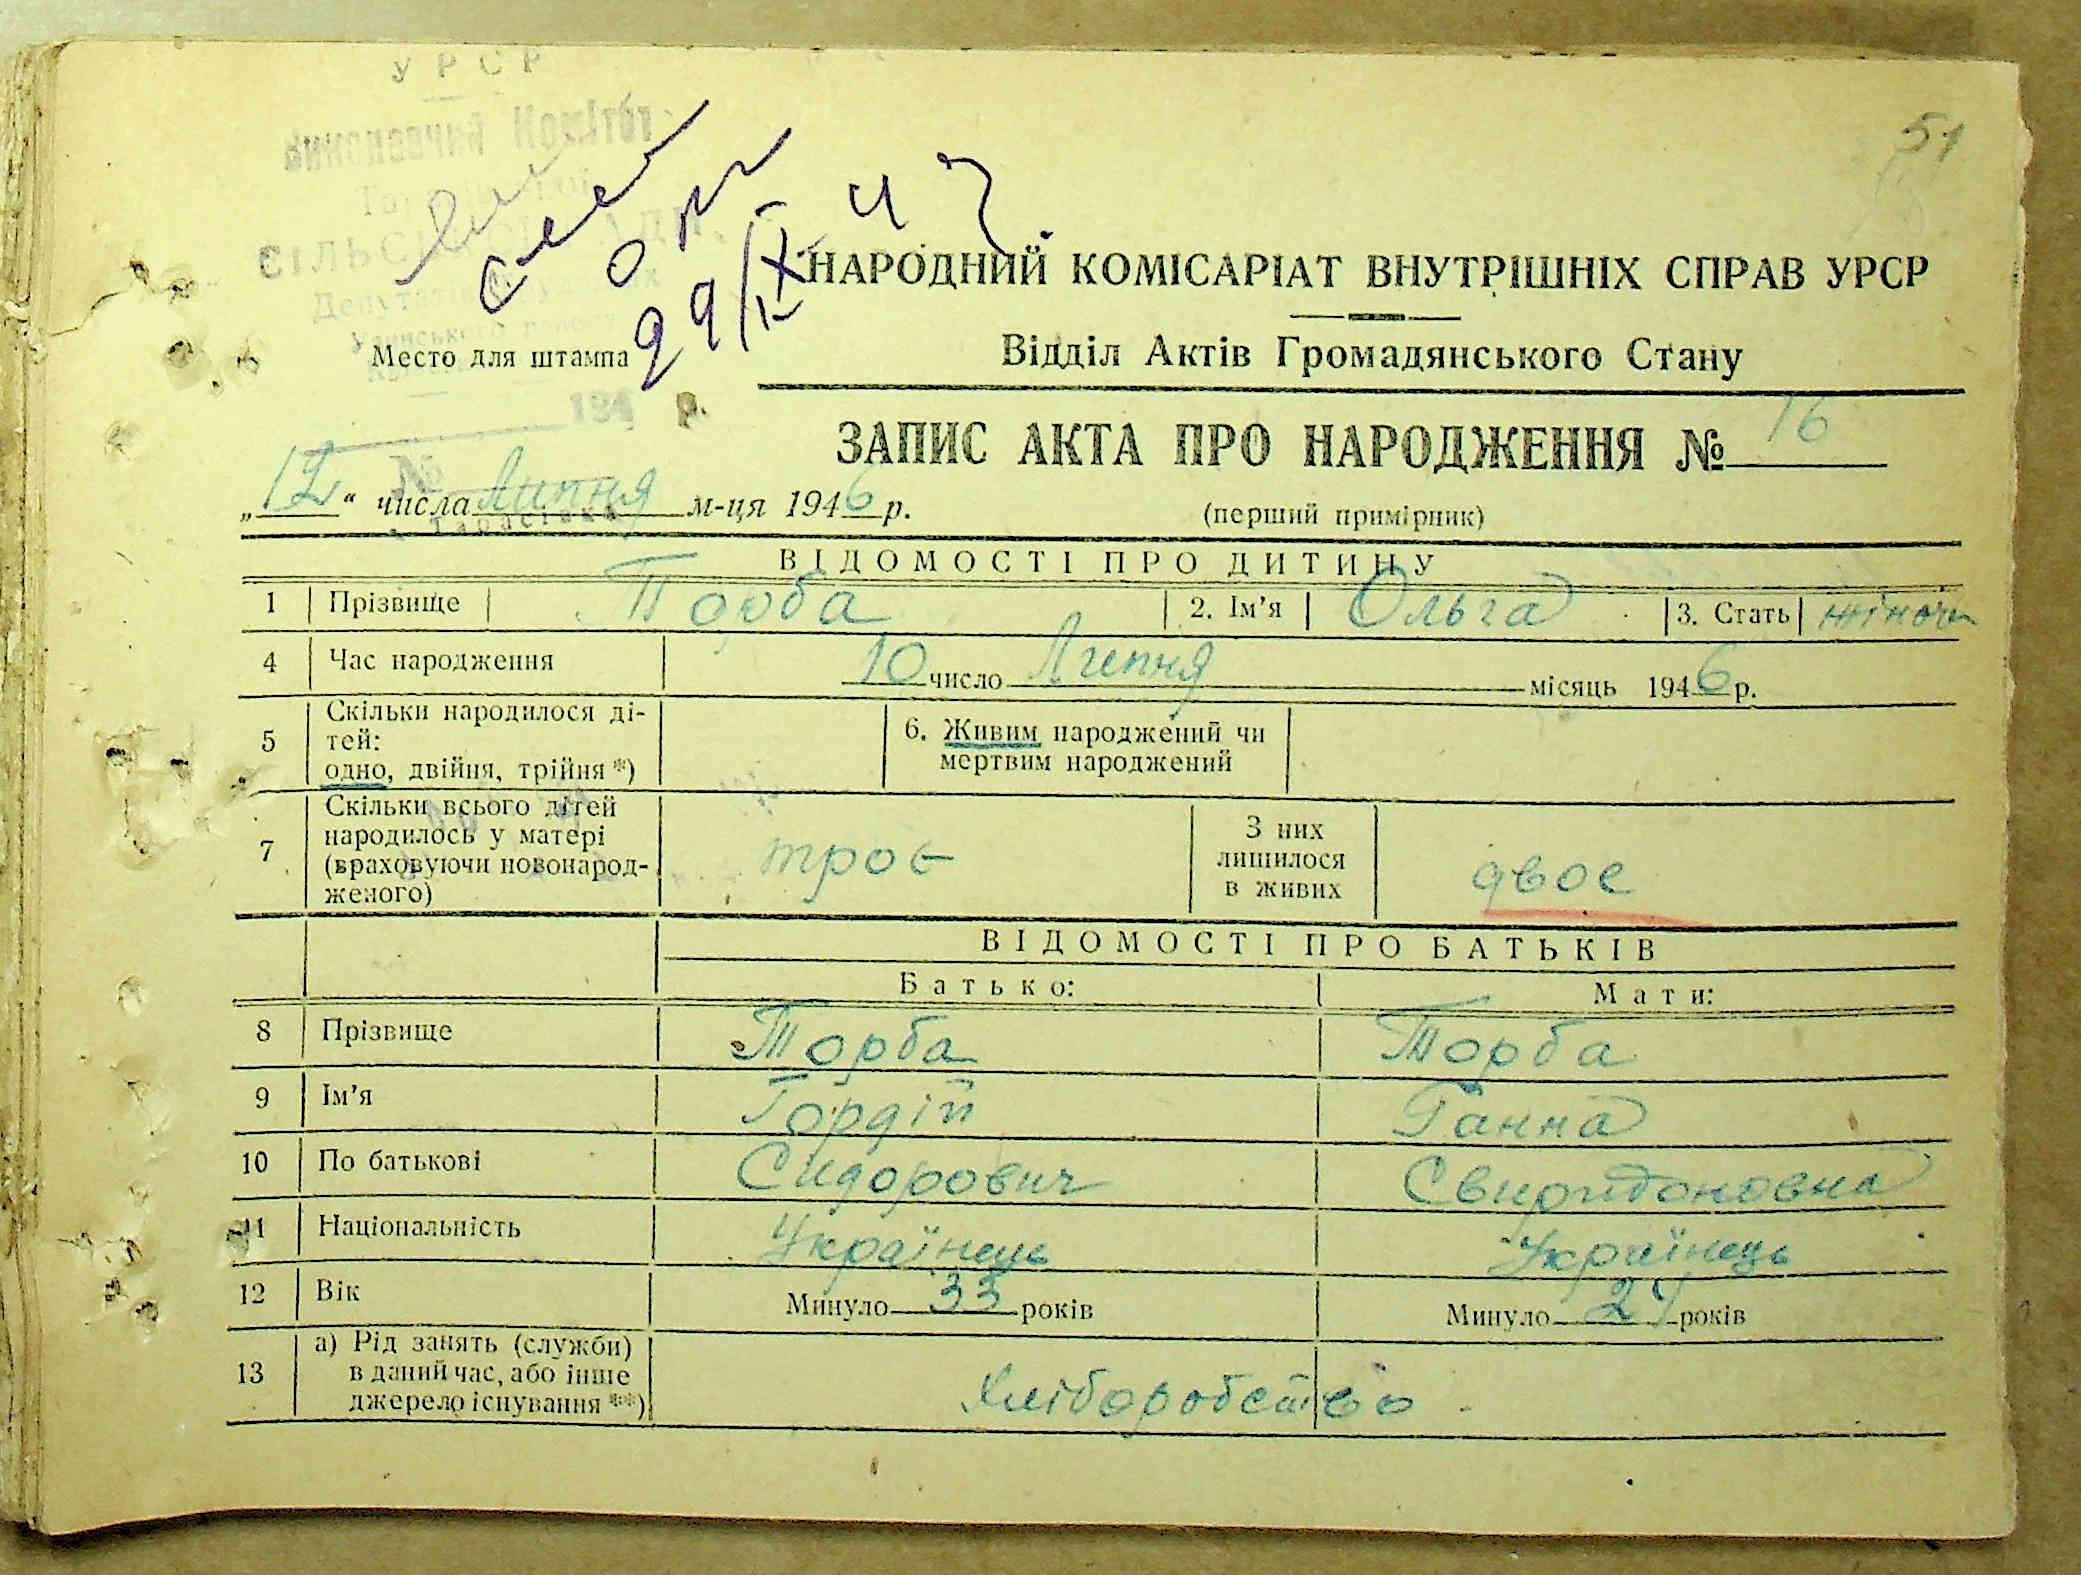 УРСР
51
Виконавчий Комітет
НАРОДНИЙ КОМІСАРІАТ ВНУТРІШНІХ СПРАВ УРСР
Место для штампа
Відділ Актів Громадянського Стану
194 р.
ЗАПИС АКТА ПРО НАРОДЖЕННЯ № 16
№
„12“ числа Липня м-ця 1946 р.
(перший примірник)
ВІДОМОСТІ ПРО ДИТИНУ
1 Прізвище Торба 2. Ім'я Ольга 3. Стать жіноч
4 Час народження 10 число Липня місяць 1946 р.
5 Скільки народилося ді-
тей:
одно, двійня, трійня *)
6. Живим народжений чи
мертвим народжений
7 Скільки всього дітей
народилось у матері
(враховуючи новонарод-
женого)
троє
З них
лишилося
в живих
двое
ВІДОМОСТІ ПРО БАТЬКІВ
Батько: Мати:
8 Прізвище Торба Торба
9 Ім'я Гордій Ганна
10 По батькові Сидорович Свиридоновна
11 Національність Українець Українець
12 Вік Минуло 33 років Минуло років
13 а) Рід занять (служби)
в даний час, або інше
джерело існування **)
Хліборобство